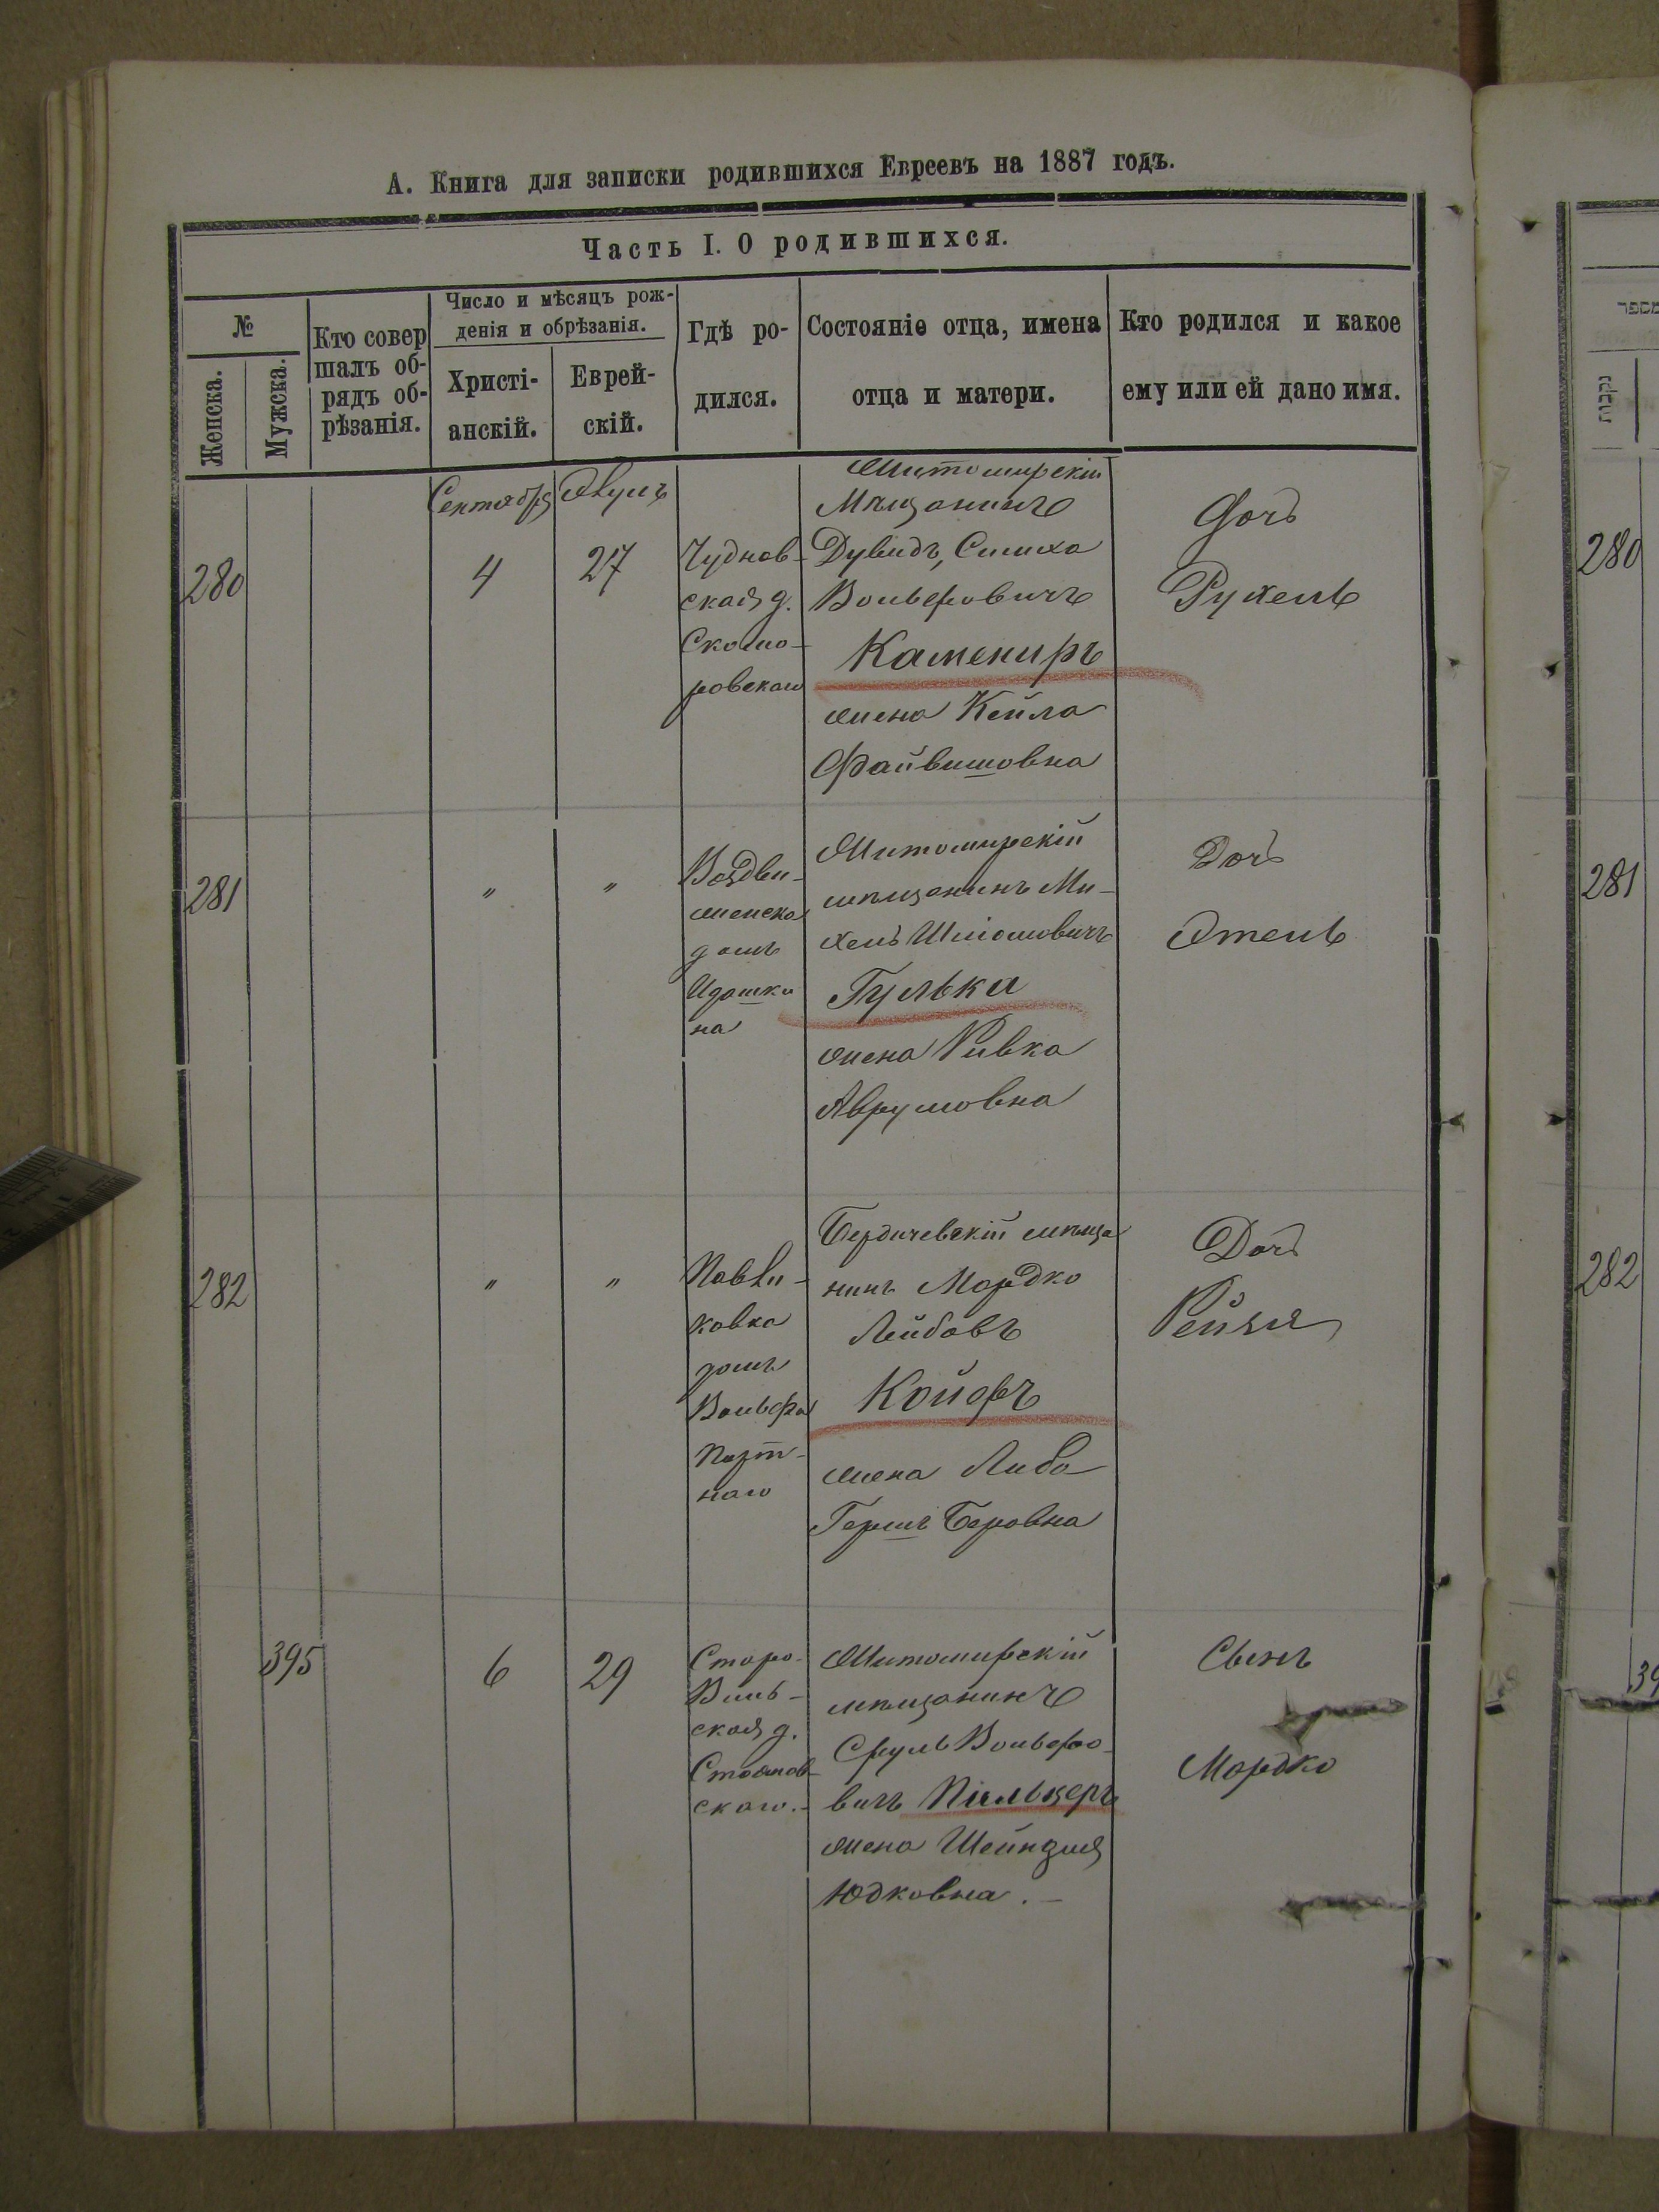 А. Книга для записки родившихся Евреевъ на 1887 годъ.
Часть I. О родившихся.
№
Женска.
Мужска.
Кто совер
шалъ об-
рядъ об-
рѣзанія.
Число и мѣсяцъ рож-
денія и обрѣзанія.
Христі-
анскій.
Еврей-
скій.
Гдѣ ро-
дился.
Состояніе отца, имена
отца и матери.
Кто родился и какое
ему или ей дано имя.
280
Сентября
4
27
Чуднов-
ская д.
Скомо-
ровскаго
Житомирскій
Мѣщанинъ
Дувидъ, Симха
Вольфовичъ
Камениръ
жена Кейла
Файвишовна
Дочь
Рухель
281
"
"
Воздви-
женска
домъ
на
Житомирскій
мѣщанинъ Ми-
хель Шліомовичъ
Гулька
жена Ривка
Аврумовна
Дочь
Этель
282
"
"
Павли-
ковка
домъ
Вольфа
Порт-
наго
Бердичевскій мѣща
нинъ Мордко
Лейбовъ
Койфъ
жена Либа
Гершъ Беровна
Дочь
Рейзя
395
6
29
Старо-
Виль-
ская д.
скаго.-
Житомирскій
мѣщанинъ
Сруль Вольфо-
вичъ Пильцеръ
жена Шейндля
Юдковна.-
Сынъ
Мордко
280
281
282
39